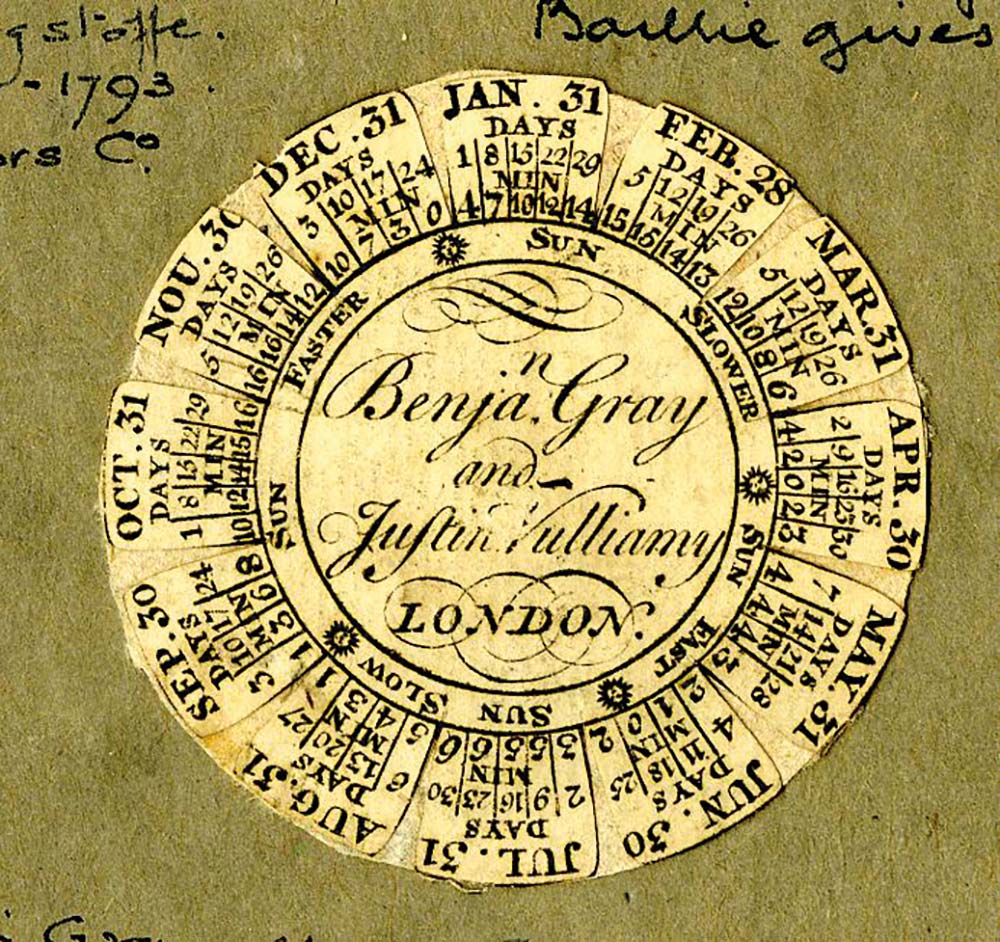 gstoffe.
- 1793.
ors Co.
Baillie gives
JAN. 31
DAYS
1 8 15 22 29
MIN
4 7 10 12 14
FEB. 28
DAYS
5 12 19 26
MIN
15 15 14 13
MAR. 31
DAYS
5 12 19 26
MIN
12 10 8 6
APR. 30
DAYS
2 9 16 23 30
MIN
4 2 0 2 3
MAY. 31
DAYS
7 14 21 28
MIN
4 4 4 3
JUN. 30
DAYS
4 11 18 25
MIN
2 1 0 2
JUL. 31
DAYS
2 9 16 23 30
MIN
3 5 5 6 6
AUG. 31
DAYS
6 13 20 27
MIN
5 4 3 1
SEP. 30
DAYS
3 10 17 24
MIN
1 3 6 8
OCT. 31
DAYS
1 8 15 22 29
MIN
10 12 14 15 16
NOU. 30
DAYS
5 12 19 26
MIN
16 16 14 12
DEC. 31
DAYS
3 10 17 24
MIN
10 7 3 0
SUN SLOWER
SUN FAST
SUN SLOW
SUN FASTER
Benja.n Gray
and
Justin Vulliamy
LONDON.